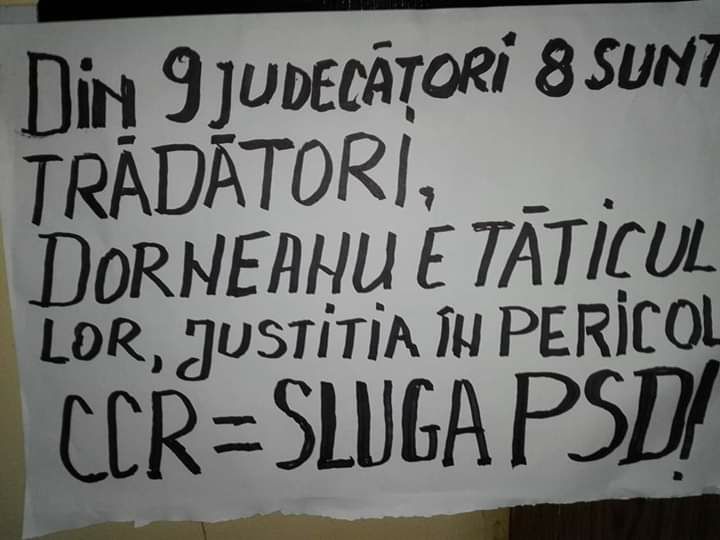 Din 9 JUDECĂȚORI 8 SUNT
TRĂDĂTORI,
DORNEANU E TĂTICUL
LOR, JUSTITIA ÎN PERICOL
CCR = SLUGA PSD!